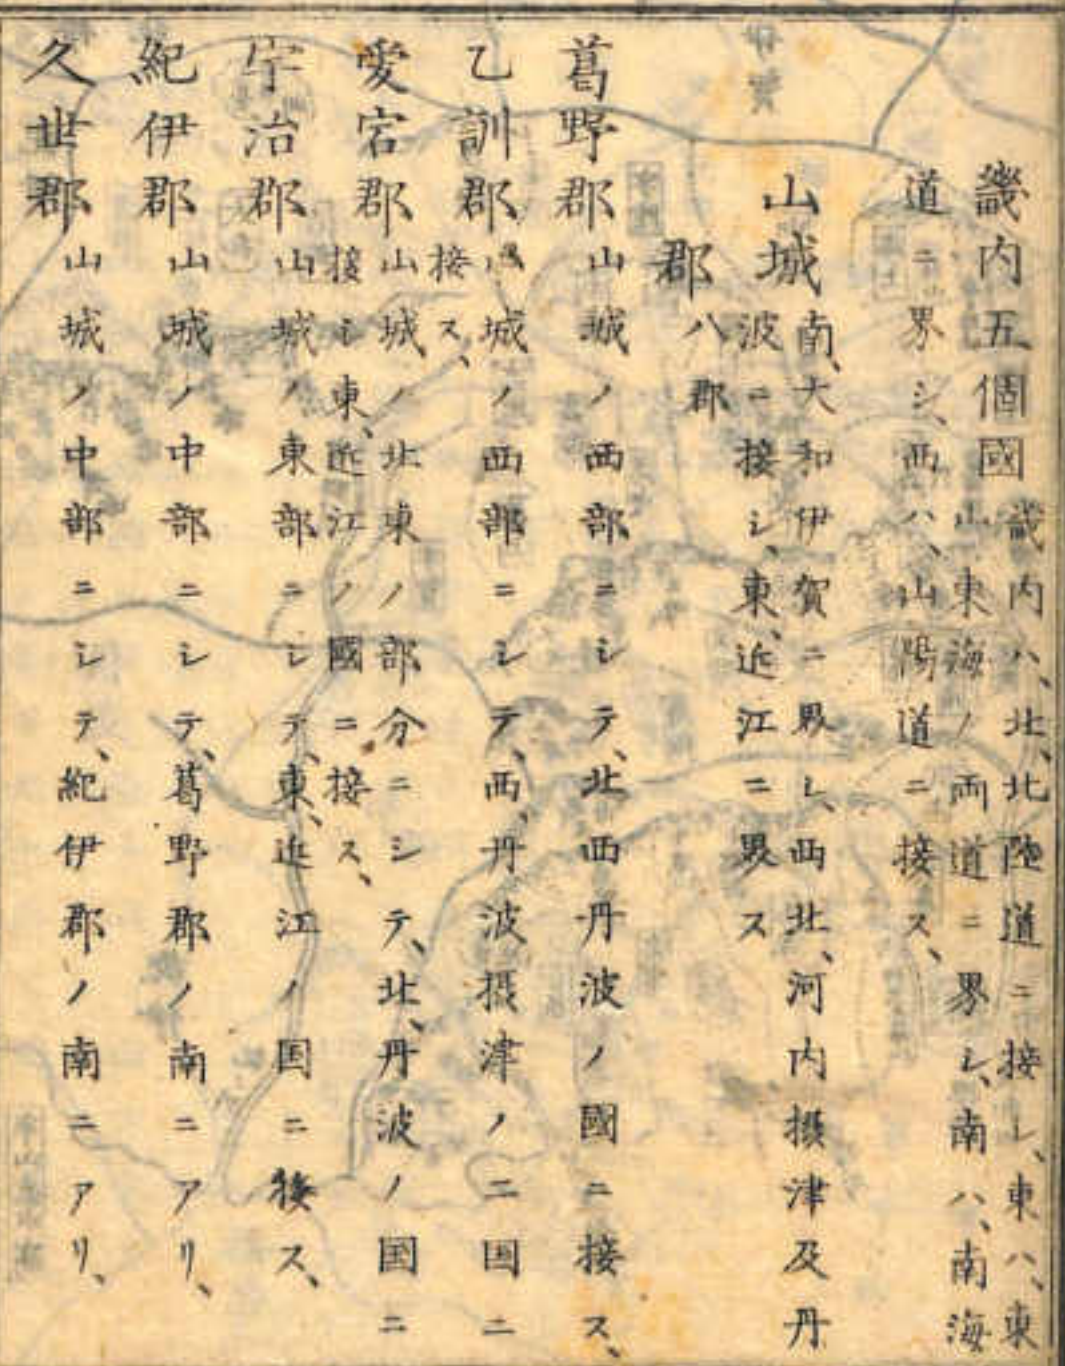 畿内五個國 畿内ハ、北、北陸道ニ接シ、東ハ、東
山東海ノ両道ニ界シ、南ハ、南海
道ニ界シ、西ハ、山陽道ニ接ス、
山城 南、大和伊賀ニ界シ、西北、河内摂津及丹
波ニ接シ、東、近江ニ界ス
郡 八郡
葛野郡 山城ノ西部ニシテ、北西丹波ノ國ニ接ス、
乙訓郡 山城ノ西部ニシテ、西、丹波摂津ノ二国ニ
接ス、
愛宕郡 山城ノ北東ノ部分ニシテ、北、丹波ノ国ニ
接シ、東、近江ノ國ニ接ス、
宇治郡 山城ノ東部ニシテ、東、近江ノ国ニ接ス、
紀伊郡 山城ノ中部ニシテ、葛野郡ノ南ニアリ、
久世郡 山城ノ中部ニシテ、紀伊郡ノ南ニアリ、